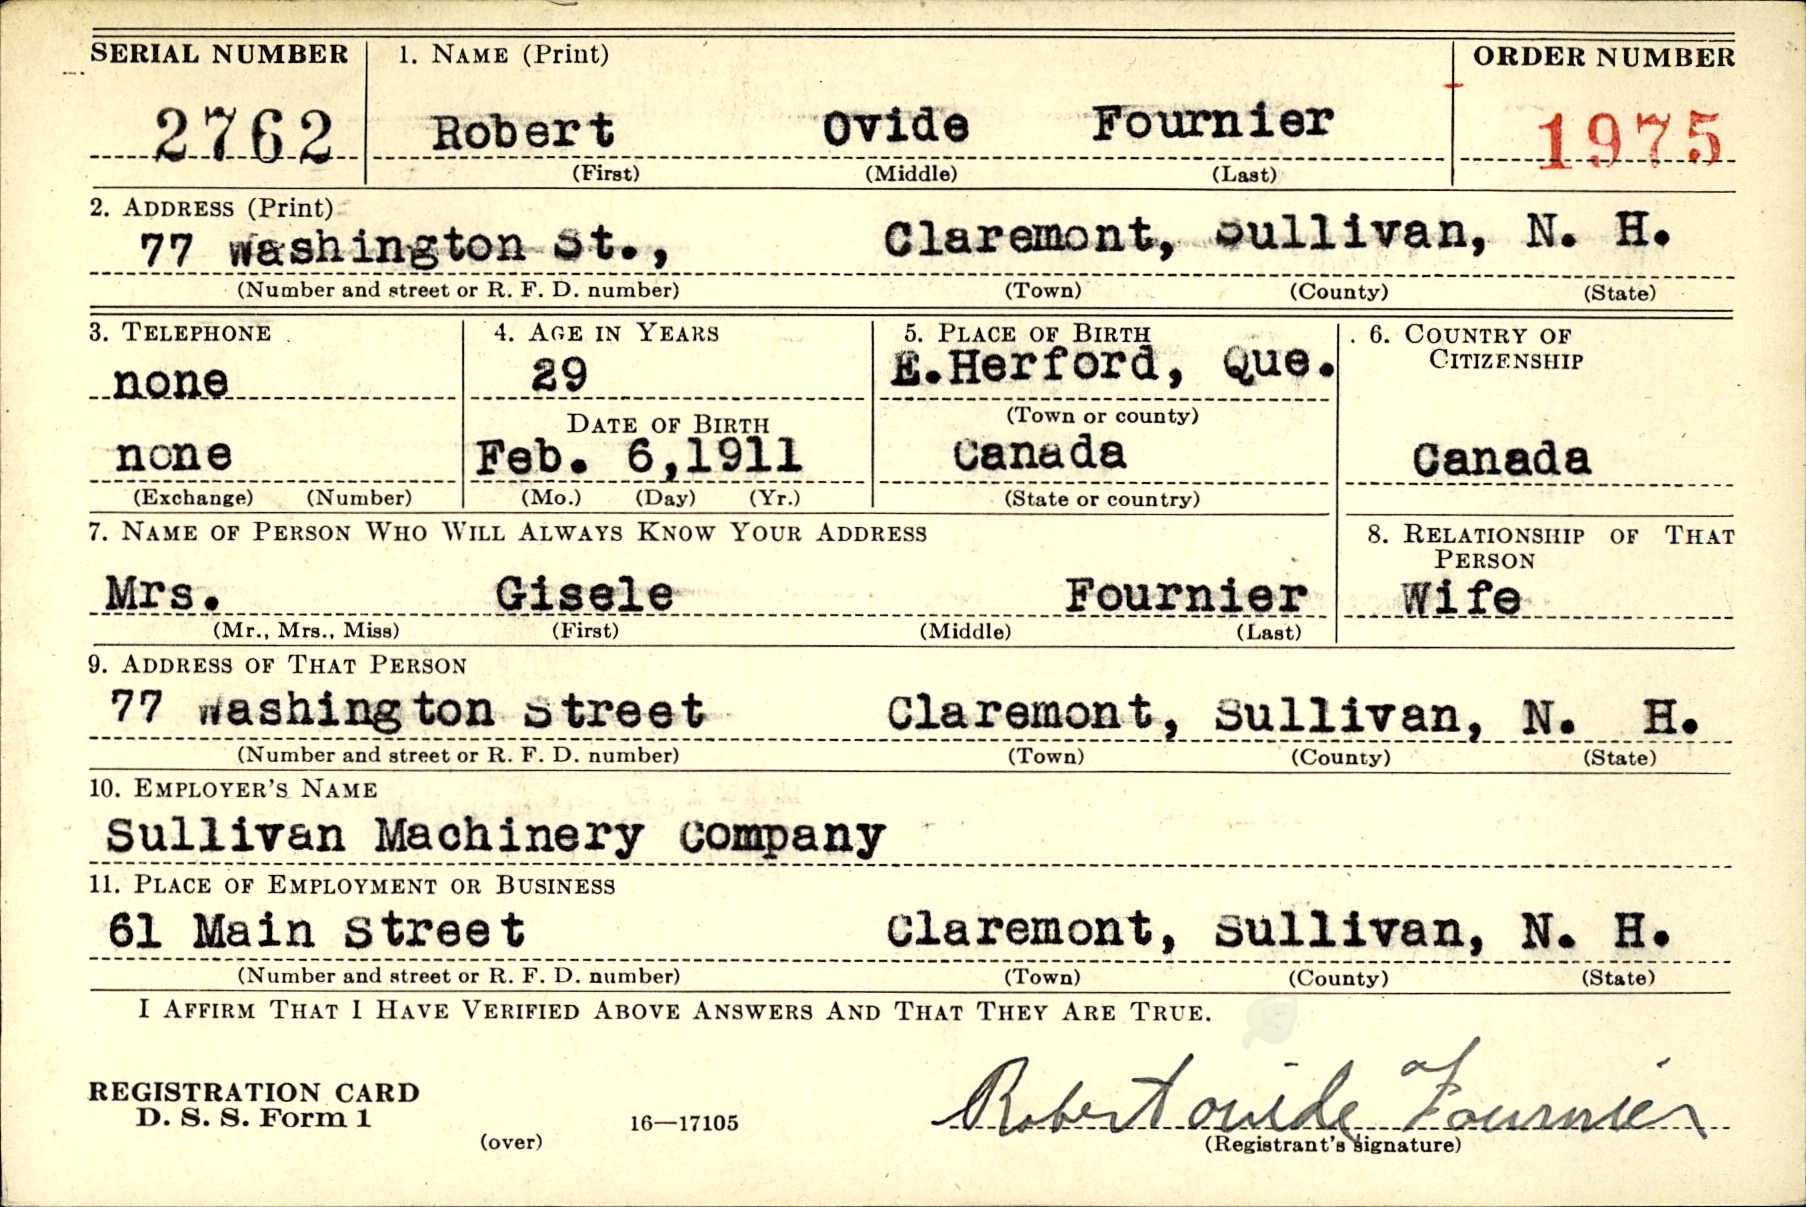 SERIAL NUMBER 1. NAME (Print) ORDER NUMBER
2762 Robert Ovide Fournier 1975
(First) (Middle) (Last)
2. ADDRESS (Print)
77 Washington St., Claremont, Sullivan, N. H.
(Number and street or R. F. D. number) (Town) (County) (State)
3. TELEPHONE 4. AGE IN YEARS 5. PLACE OF BIRTH 6. COUNTRY OF
CITIZENSHIP
none 29 E.Herford, Que.
DATE OF BIRTH (Town or county)
none Feb. 6,1911 Canada Canada
(Exchange) (Number) (Mo.) (Day) (Yr.) (State or country)
7. NAME OF PERSON WHO WILL ALWAYS KNOW YOUR ADDRESS 8. RELATIONSHIP OF THAT
PERSON
Mrs. Gisele Fournier Wife
(Mr., Mrs., Miss) (First) (Middle) (Last)
9. ADDRESS OF THAT PERSON
77 Washington Street Claremont, Sullivan, N. H.
(Number and street or R. F. D. number) (Town) (County) (State)
10. EMPLOYER'S NAME
Sullivan Machinery Company
11. PLACE OF EMPLOYMENT OR BUSINESS
61 Main Street Claremont, Sullivan, N. H.
(Number and street or R. F. D. number) (Town) (County) (State)
I AFFIRM THAT I HAVE VERIFIED ABOVE ANSWERS AND THAT THEY ARE TRUE.
REGISTRATION CARD
D. S. S. Form 1 16—17105 Robert ovide Fournier
(over) (Registrant's signature)